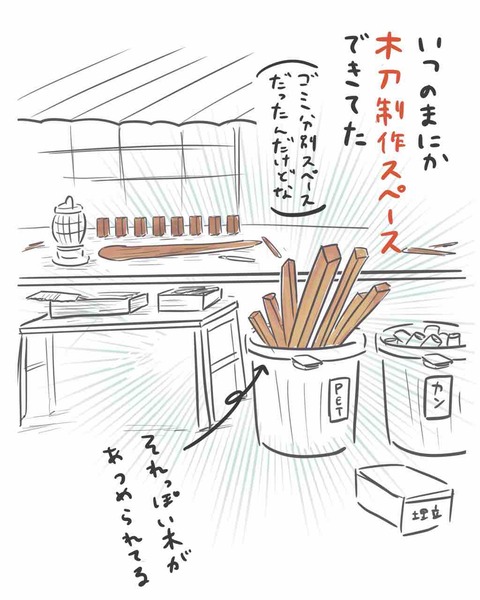 いつのまにか
木刀制作スペース
できてた
ゴミ分別スペース
だったんだけどな
PET
カン
埋立
それっぽい木が
あつめられてる